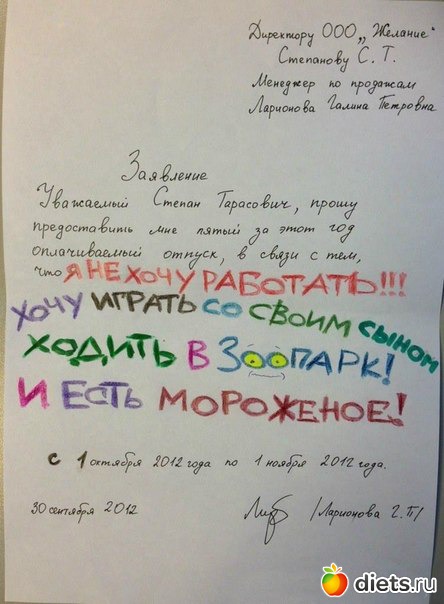 Директору ООО „Желание"
Степанову С. Т.
Менеджер по продажам
Ларионова Галина Петровна
Заявление
Уважаемый Степан Тарасович, прошу
предоставить мне пятый за этот год
оплачиваемый отпуск, в связи с тем,
что Я НЕ ХОЧУ РАБОТАТЬ!!!
ХОЧУ ИГРАТЬ СО СВОИМ СЫНОМ
ХОДИТЬ В ЗООПАРК!
И ЕСТЬ МОРОЖЕНОЕ!
с 1 октября 2012 года по 1 ноября 2012 года.
30 сентября 2012 /Ларионова Г. П/
diets.ru